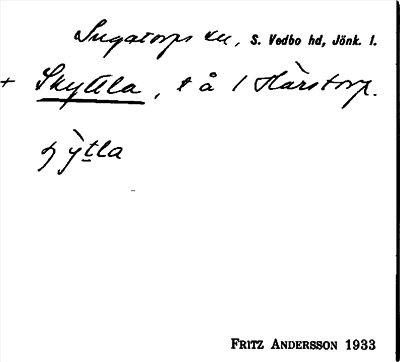 Ingatorps sn, S. Vedbo hd, Jönk. l.
+ Skyttla, t å 1 Hårstorp.
ʃỳtla
FRITZ ANDERSSON 1933